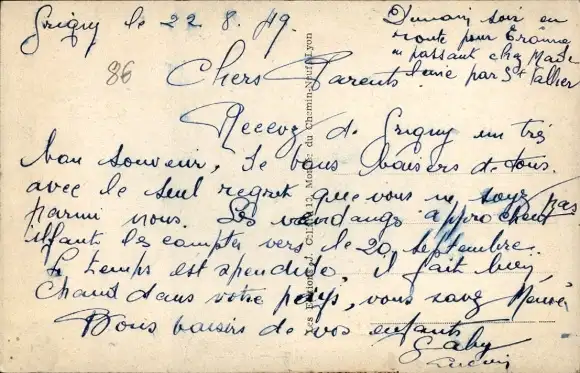 Grigny le 22.8.49.
Demain soir en
route pour Craonne
en passant chez
par St Vallier
86
Chers Parents
Recevez de Grigny un très
bon souvenir, de bons baisers de tous.
avec le seul regret que vous ne soyez pas
parmi nous. Les vendanges approchent
il faut les compter vers le 20 septembre.
Le temps est spendide, il fait bien
chaud dans votre pays, vous savez
Bons baisers de vos enfants
Gaby
Les Editions
Montée du Chemin-Neuf, Lyon